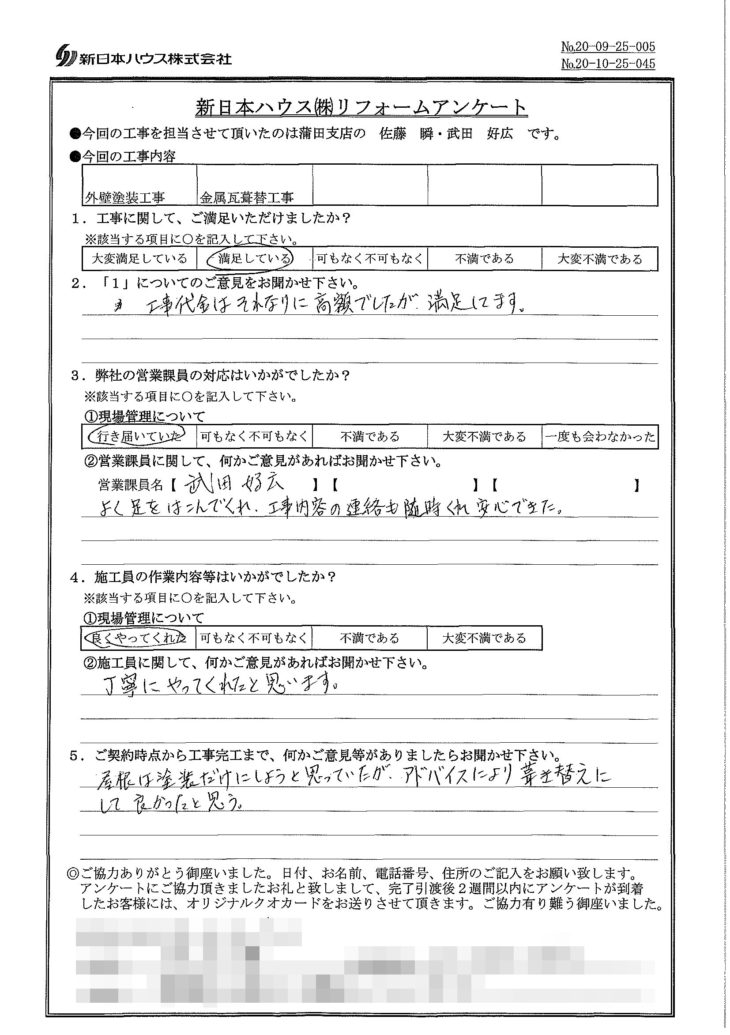 新日本ハウス株式会社
No.20-09-25-005
No.20-10-25-045
新日本ハウス㈱リフォームアンケート
●今回の工事を担当させて頂いたのは蒲田支店の 佐藤 瞬・武田 好広 です。
●今回の工事内容
外壁塗装工事 金属瓦葺替工事
1．工事に関して、ご満足いただけましたか？
※該当する項目に○を記入して下さい。
大変満足している 満足している 可もなく不可もなく 不満である 大変不満である
2．「1」についてのご意見をお聞かせ下さい。
工事代金はそれなりに高額でしたが、満足してます。
3．弊社の営業課員の対応はいかがでしたか？
※該当する項目に○を記入して下さい。
①現場管理について
行き届いていた 可もなく不可もなく 不満である 大変不満である 一度も会わなかった
②営業課員に関して、何かご意見があればお聞かせ下さい。
営業課員名【 武田 好広 】【 】【 】
よく足をはこんでくれ、工事内容の連絡も随時くれ安心できた。
4．施工員の作業内容等はいかがでしたか？
※該当する項目に○を記入して下さい。
①現場管理について
良くやってくれた 可もなく不可もなく 不満である 大変不満である
②施工員に関して、何かご意見があればお聞かせ下さい。
丁寧にやってくれたと思います。
5．ご契約時点から工事完工まで、何かご意見等がありましたらお聞かせ下さい。
屋根は塗装だけにしようと思っていたが、アドバイスにより葺き替えに
して良かったと思う。
◎ご協力ありがとう御座いました。日付、お名前、電話番号、住所のご記入をお願い致します。
アンケートにご協力頂きましたお礼と致しまして、完了引渡後2週間以内にアンケートが到着
したお客様には、オリジナルクオカードをお送りさせて頂きます。ご協力有り難う御座いました。